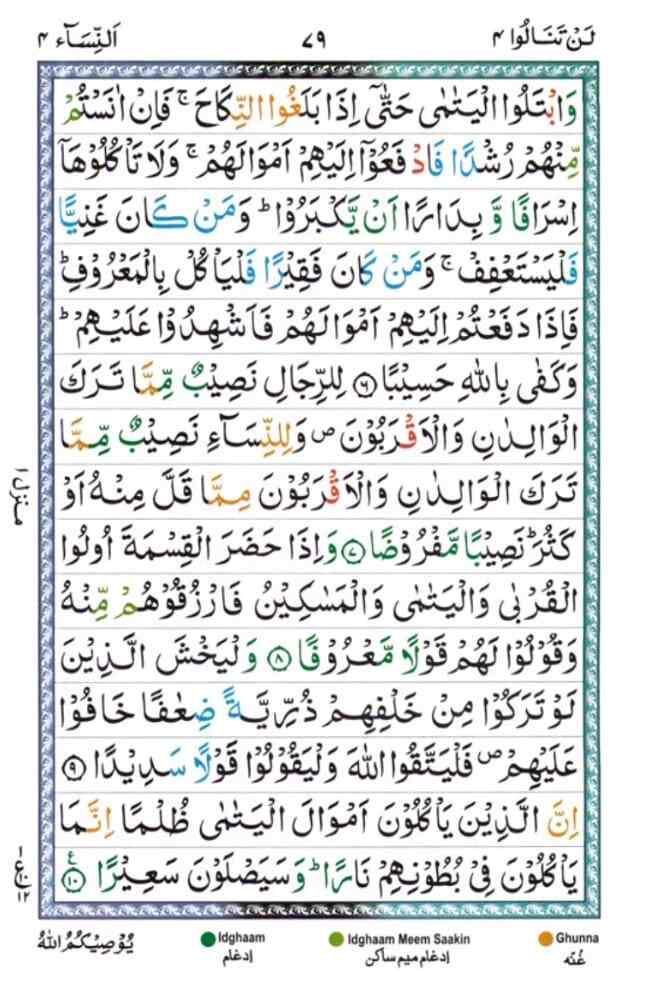 لَنْ تَنَالُوا ۴ ۷۹ اَلنِّسَآء ۴
وَابْتَلُوا الْيَتٰمٰى حَتّٰۤى اِذَا بَلَغُوا النِّكَاحَ ۚ فَاِنْ اٰنَسْتُمْ
مِّنْهُمْ رُشْدًا فَادْفَعُوْۤا اِلَيْهِمْ اَمْوَالَهُمْ ۚ وَلَا تَاْكُلُوْهَاۤ
اِسْرَافًا وَّ بِدَارًا اَنْ يَّكْبَرُوْا ؕ وَمَنْ كَانَ غَنِيًّا
فَلْيَسْتَعْفِفْ ۚ وَمَنْ كَانَ فَقِيْرًا فَلْيَاْكُلْ بِالْمَعْرُوْفِ ؕ
فَاِذَا دَفَعْتُمْ اِلَيْهِمْ اَمْوَالَهُمْ فَاَشْهِدُوْا عَلَيْهِمْ ؕ
وَكَفٰى بِاللّٰهِ حَسِيْبًا ۶ لِلرِّجَالِ نَصِيْبٌ مِّمَّا تَرَكَ
الْوَالِدٰنِ وَالْاَقْرَبُوْنَ ۪ وَلِلنِّسَآءِ نَصِيْبٌ مِّمَّا
تَرَكَ الْوَالِدٰنِ وَالْاَقْرَبُوْنَ مِمَّا قَلَّ مِنْهُ اَوْ
كَثُرَ ؕ نَصِيْبًا مَّفْرُوْضًا ۷ وَاِذَا حَضَرَ الْقِسْمَةَ اُولُوا
الْقُرْبٰى وَالْيَتٰمٰى وَالْمَسٰكِيْنُ فَارْزُقُوْهُمْ مِّنْهُ
وَقُوْلُوْا لَهُمْ قَوْلًا مَّعْرُوْفًا ۸ وَلْيَخْشَ الَّذِيْنَ
لَوْ تَرَكُوْا مِنْ خَلْفِهِمْ ذُرِّيَّةً ضِعٰفًا خَافُوْا
عَلَيْهِمْ ۪ فَلْيَتَّقُوا اللّٰهَ وَلْيَقُوْلُوْا قَوْلًا سَدِيْدًا ۹
اِنَّ الَّذِيْنَ يَاْكُلُوْنَ اَمْوَالَ الْيَتٰمٰى ظُلْمًا اِنَّمَا
يَاْكُلُوْنَ فِيْ بُطُوْنِهِمْ نَارًا ؕ وَسَيَصْلَوْنَ سَعِيْرًا ۱۰ ع
منزل ۱
ع ۱۰ ۱۲
Ghunna Idghaam Meem Saakin Idghaam
غُنّه اِدغام ميم ساكن اِدغام
يُوْصِيْكُمُ اللّٰهُ